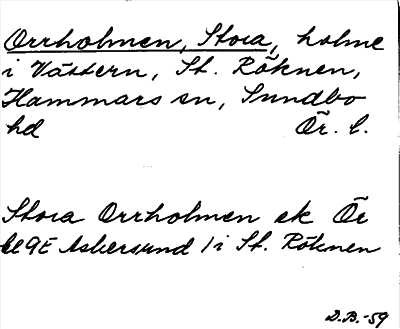 Orrholmen, Stora, holme
i Vättern, St. Röknen,
Hammars sn, Sundbo
hd Ör. l.
Stora Orrholmen ek Ör
9E Askersund /i St. Röknen
D.B.-59